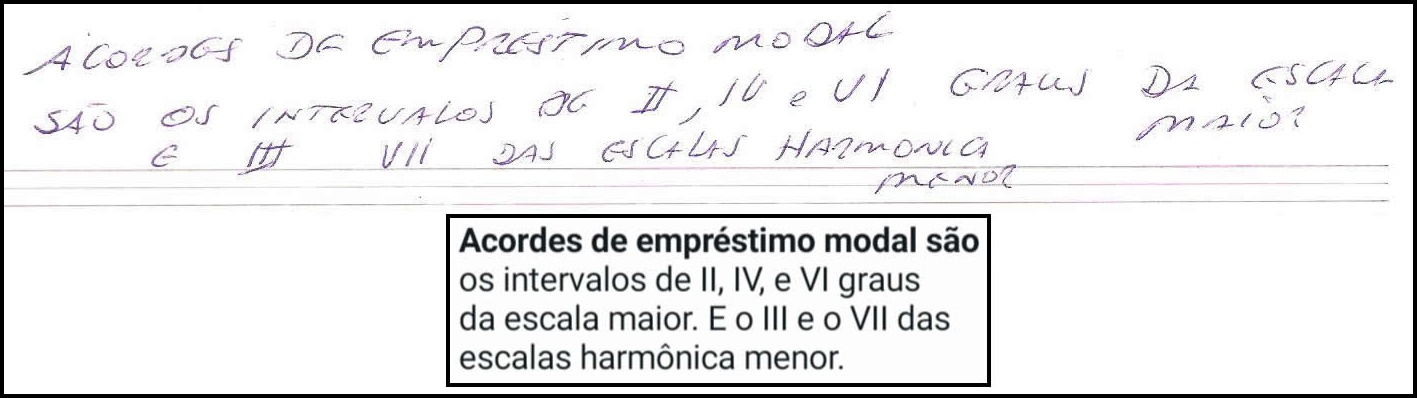 ACORDES DE EMPRESTIMO MODAL
SÃO OS INTERVALOS DE II, IV e VI GRAUS DA ESCALA
MAIOR
E III VII DAS ESCALAS HARMONICA
MENOR
Acordes de empréstimo modal são
os intervalos de II, IV, e VI graus
da escala maior. E o III e o VII das
escalas harmônica menor.